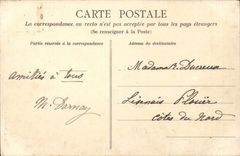 CARTE POSTALE
La correspondance au recto n'est pas acceptée par tous les pays étrangers
(Se renseigner à la Poste)
Partie réservée à la correspondance
Adresse du destinataire
Madame Ducreux
amitiés à tous
M. Dernay
Plouër
Côtes du Nord